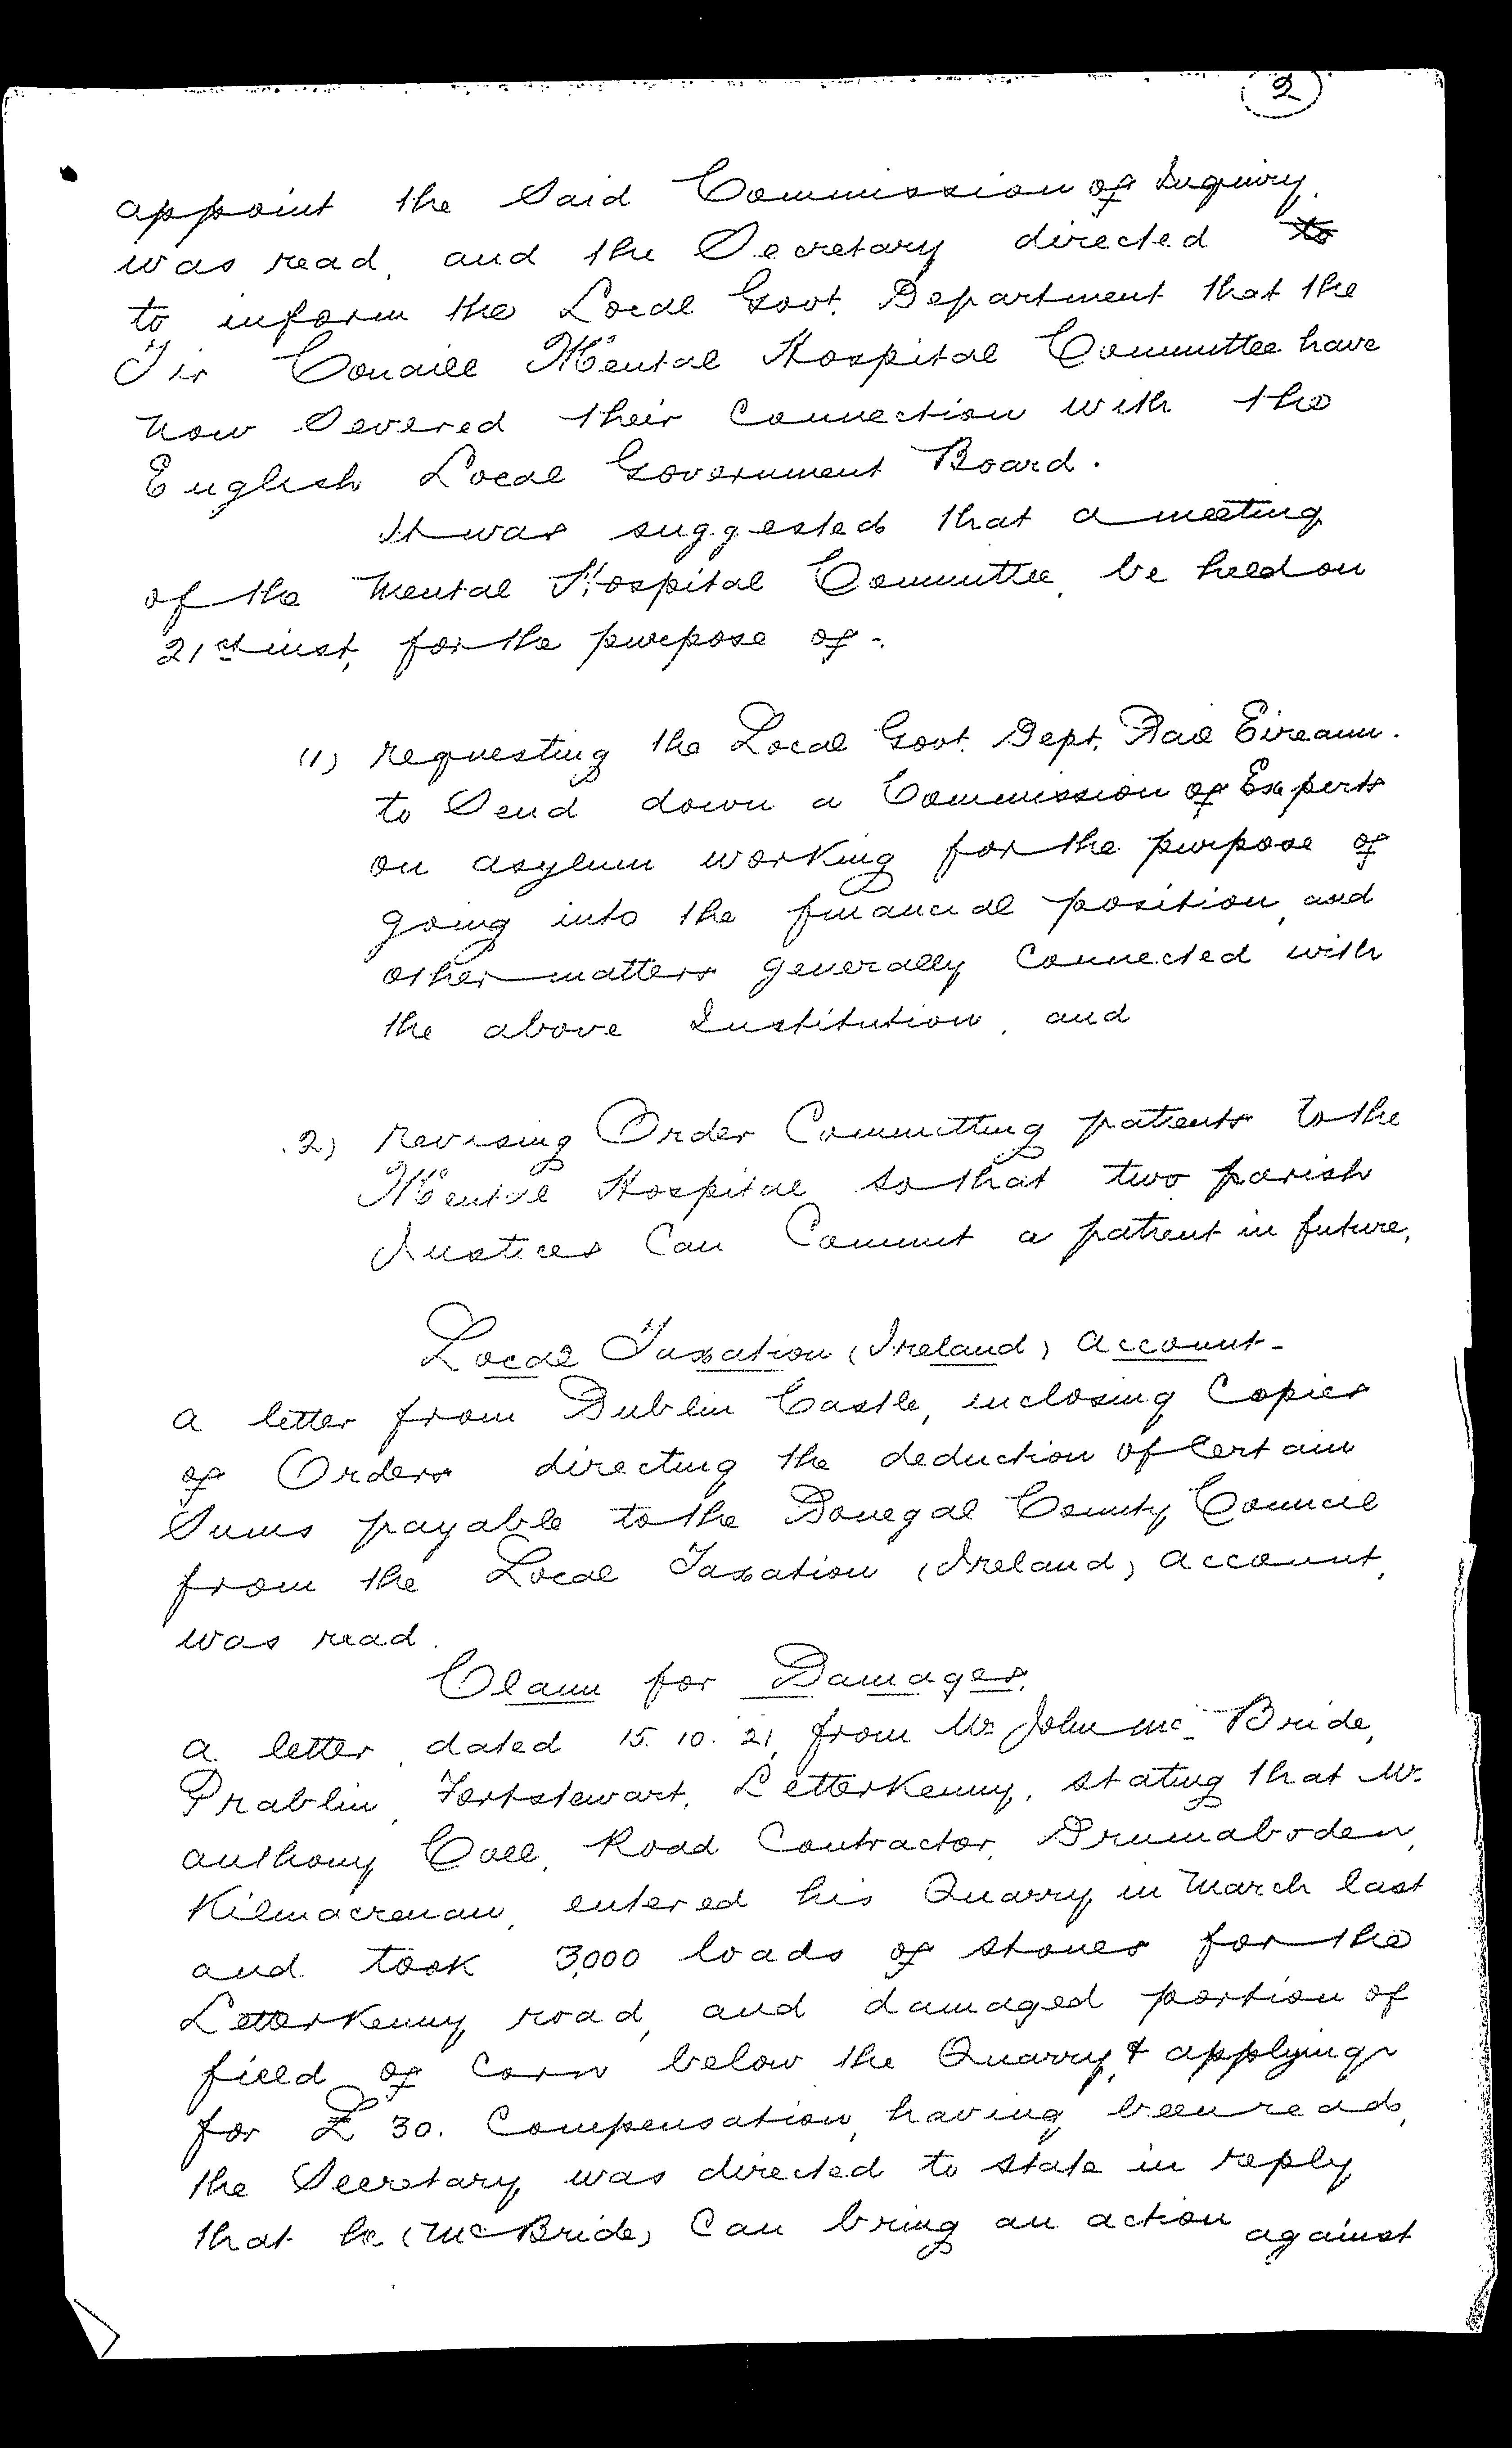 2
appoint the said Commission of Inquiry,
was read, and the Secretary directed to
to inform the Local Govt. Department that the
Tir Conaill Mental Hospital Committee have
now severed their connection with the
English Local Government Board.
It was suggested that a meeting
of the Mental Hospital Committee, be held on
21st inst, for the purpose of -.
(1) requesting the Local Govt. Dept. Dail Eireann.
to send down a Commission of Experts
on asylum working for the purpose of
going into the financial position, and
other matters generally connected with
the above Institution, and
2) revising Order Committing patients to the
Mental Hospital so that two parish
Justices can commit a patient in future.
Local Taxation (Ireland) Account-
a letter from Dublin Castle, inclosing copies
of Orders directing the deduction of certain
sums payable to the Donegal County Council
from the Local Taxation (Ireland) account,
was read.
Claim for Damages.
a letter, dated 15. 10. 21, from Mr. John Mc Bride,
Fortstewart, Letterkenny, stating that Mr.
Anthony Coll, Road Contractor, Drumaboden,
Kilmacrenan, entered his Quarry in March last
and took 3,000 loads of stones for the
Letterkenny road, and damaged portion of
field of corn below the Quarry, & applying
for £30. Compensation, having been read,
the Secretary was directed to state in reply
that he (McBride) can bring an action against